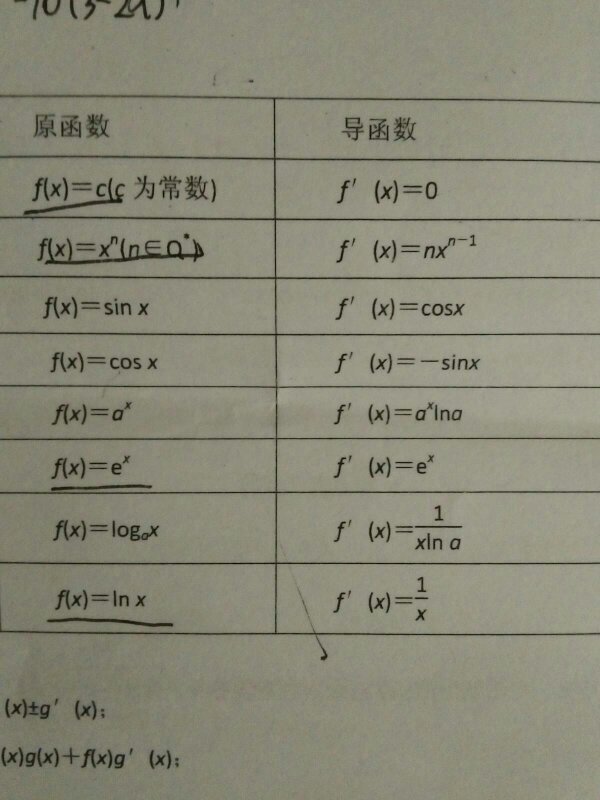 -10(3-2x)⁴
原函数 导函数
f(x)=c(c 为常数) f′ (x)=0
f(x)=xⁿ(n∈Q*) f′ (x)=nxⁿ⁻¹
f(x)=sin x f′ (x)=cosx
f(x)=cos x f′ (x)=－sinx
f(x)=aˣ f′ (x)=aˣlna
f(x)=eˣ f′ (x)=eˣ
f(x)=logₐx f′ (x)=1/(xln a)
f(x)=ln x f′ (x)=1/x
(x)±g′ (x);
(x)g(x)+f(x)g′ (x);